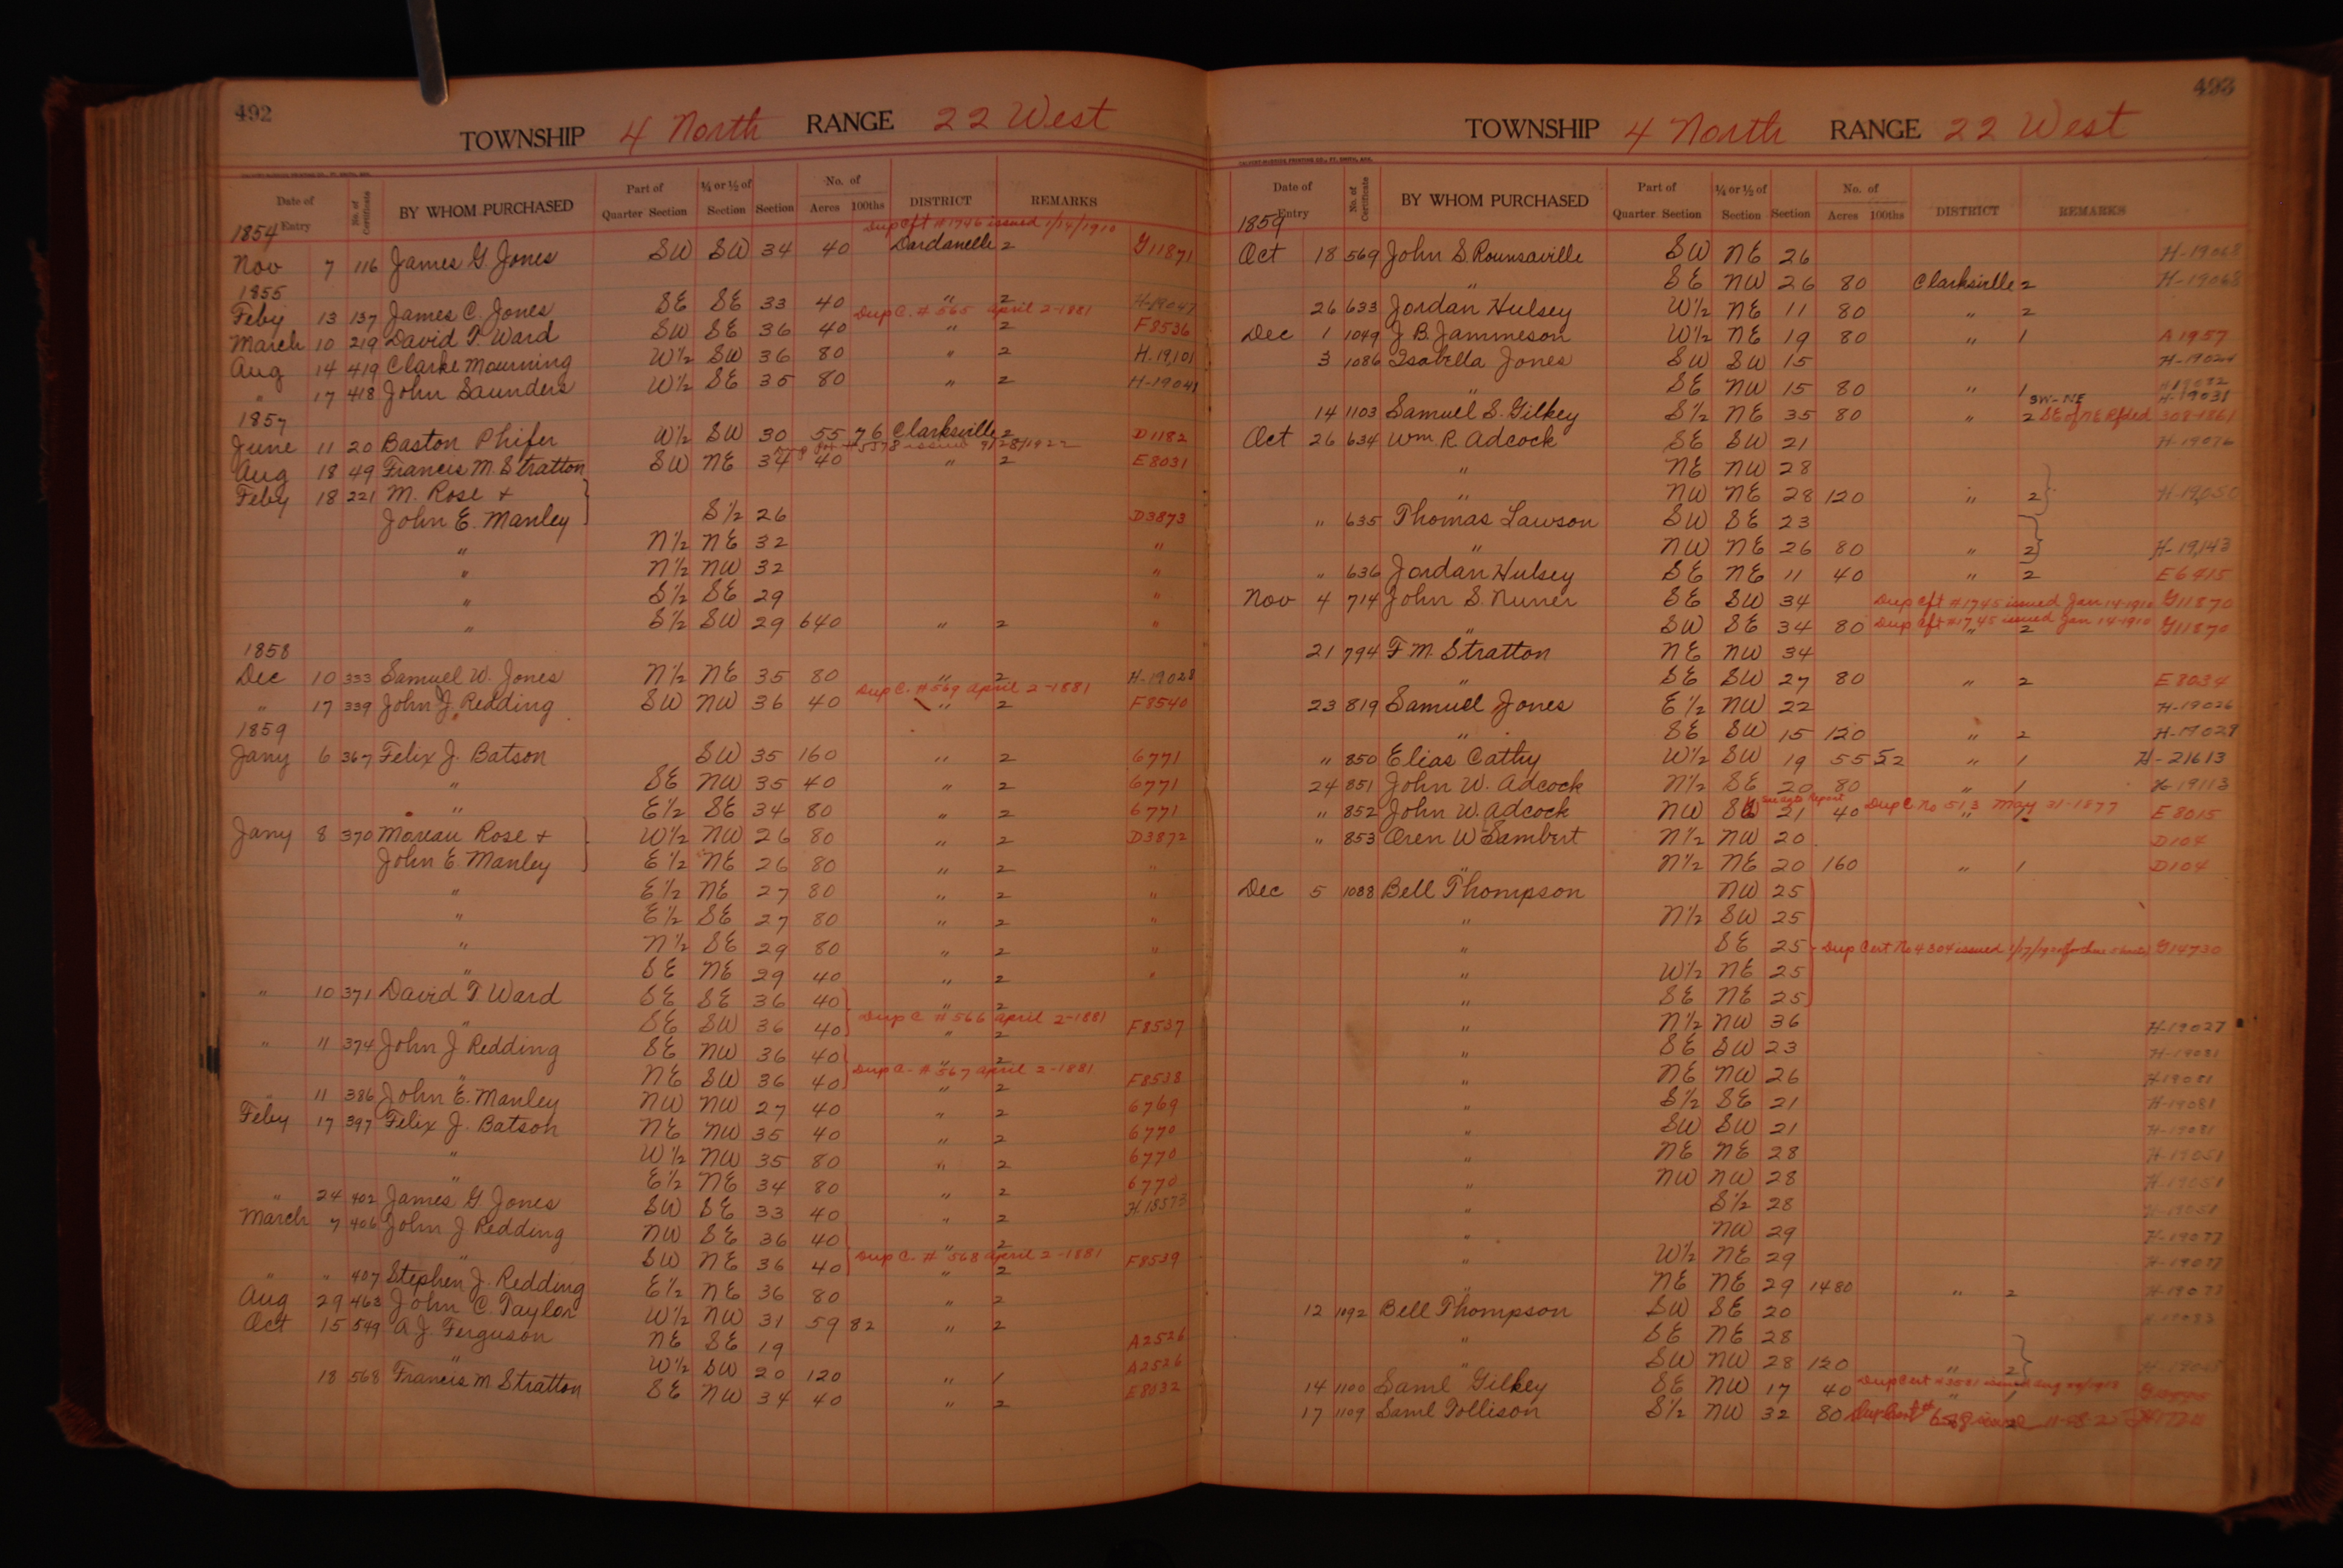 492
TOWNSHIP 4 North RANGE 22 West
Date of Entry No. of Certificate BY WHOM PURCHASED Part of Quarter Section ¼ or ½ of Section Section No. of Acres 100ths DISTRICT REMARKS
1854 Dup Cft # 1746 issued 1/14/1910
Nov 7 116 James G. Jones SW SW 34 40 Dardanelle 2 G11871
1855
Feby 13 137 James C. Jones SE SE 33 40 " 2 H-19047
Dup C. # 565 April 2-1881
March 10 219 David T. Ward SW SE 36 40 " 2 F8536
Aug 14 419 Clarke Mourning W½ SW 36 80 " 2 H-19,101
" 17 418 John Saunders W½ SE 35 80 " 2 H-19041
1857
June 11 20 Baston Phifer W½ SW 30 55 76 Clarksville 2 D1182
#5378 issued 9/28/1922
Aug 18 49 Francis M. Stratton SW NE 34 40 " 2 E8031
Feby 18 221 M. Rose +
John E. Manley S½ 26 D3873
" N½ NE 32 "
" N½ NW 32 "
" S½ SE 29 "
" S½ SW 29 640 " 2 "
1858
Dec 10 333 Samuel W. Jones N½ NE 35 80 " 2 H-19028
Dup C. # 569 April 2-1881
" 17 339 John J. Redding SW NW 36 40 " 2 F8540
1859
Jany 6 367 Felix J. Batson SW 35 160 " 2 6771
" SE NW 35 40 " 2 6771
" E½ SE 34 80 " 2 6771
Jany 8 370 Moreau Rose + W½ NW 26 80 " 2 D3872
John E. Manley E½ NE 26 80 " 2
" E½ NE 27 80 " 2 "
" E½ SE 27 80 " 2 "
" N½ SE 29 80 " 2 "
" SE NE 29 40 " 2 "
" 10 371 David T. Ward SE SE 36 40 " 2
" SE SW 36 40 Dup C # 566 April 2-1881 " 2 F8537
" 11 374 John J Redding SE NW 36 40 " 2
" NE SW 36 40 Dup C. # 567 April 2-1881 " 2 F8538
" 11 386 John E. Manley NW NW 27 40 " 2 6769
Feby 17 397 Felix J. Batson NE NW 35 40 " 2 6770
" W½ NW 35 80 " 2 6770
" E½ NE 34 80 " 2 6770
" 24 402 James G. Jones SW SE 33 40 " 2 H.18573
March 7 406 John J Redding NW SE 36 40 " 2
" SW NE 36 40 Dup C. # 568 April 2-1881 " 2 F8539
" " 407 Stephen J. Redding E½ NE 36 80 " 2
Aug 29 463 John C. Taylor W½ NW 31 59 82 " 2
Oct 15 549 A J. Ferguson NE SE 19 A2526
" W½ SW 20 120 " 1 A2526
18 568 Francis M Stratton SE NW 34 40 " 2 E8032
493
TOWNSHIP 4 North RANGE 22 West
Date of Entry No. of Certificate BY WHOM PURCHASED Part of Quarter Section ¼ or ½ of Section Section No. of Acres 100ths DISTRICT REMARKS
1859
Oct 18 569 John S. Rounsaville SW NE 26 H-19068
" SE NW 26 80 Clarksville 2 H-19068
26 633 Jordan Hulsey W½ NE 11 80 " 2
Dec 1 1049 J B. Jammeson W½ NE 19 80 " 1 A1957
3 1086 Isabella Jones SW SW 15 H-19024
" SE NW 15 80 " 1
SW-NE H-19031
14 1103 Samuel S. Gilkey S½ NE 35 80 " 2 SE of NE Rfded 308-1861
Oct 26 634 Wm R. Adcock SE SW 21 H-19076
" NE NW 28
" NW NE 28 120 " 2 H-19,050
" 635 Thomas Lawson SW SE 23
" NW NE 26 80 " 2 H-19,143
" 636 Jordan Hulsey SE NE 11 40 " 2 E6915
Nov 4 714 John S. Nuner SE SW 34 Dup Cft #1745 issued Jan 14-1910 G11870
" SW SE 34 80 Dup Cft #1745 issued Jan 14-1910 " 2 G11870
21 794 F M. Stratton NE NW 34
" SE SW 27 80 " 2 E8034
23 819 Samuel Jones E½ NW 22 H-19026
" SE SW 15 120 " 2 H-19029
" 850 Elias Cathy W½ SW 19 55 52 " 1 H-21613
24 851 John W. Adcock N½ SE 20 80 " 1 H-19113
" 852 John W. Adcock NW SW 21 40 Dup C No 513 May 31-1877 E8015
" 853 Oren W Lambert N½ NW 20 D104
" N½ NE 20 160 " 1 D104
Dec 5 1088 Bell Thompson NW 25
" N½ SW 25
" SE 25 Dup Cert No 4304 issued G14730
" W½ NE 25
" SE NE 25
" N½ NW 36 H-19027
" SE SW 23 H-19081
" NE NW 26 H-19081
" S½ SE 21 H-19081
" SW SW 21 H-19081
" NE NE 28 H-19051
" NW NW 28 H-19051
" S½ 28 H-19051
" NW 29 H-19077
" W½ NE 29 H-19077
" NE NE 29 1480 " 2
12 1092 Bell Thompson SW SE 20
" SE NE 28
" SW NW 28 120 " 2
14 1100 Saml Gilkey SE NW 17 40 Dup Cert issued " 1
17 1109 Saml Tollison S½ NW 32 80 Dup Cert issued 2